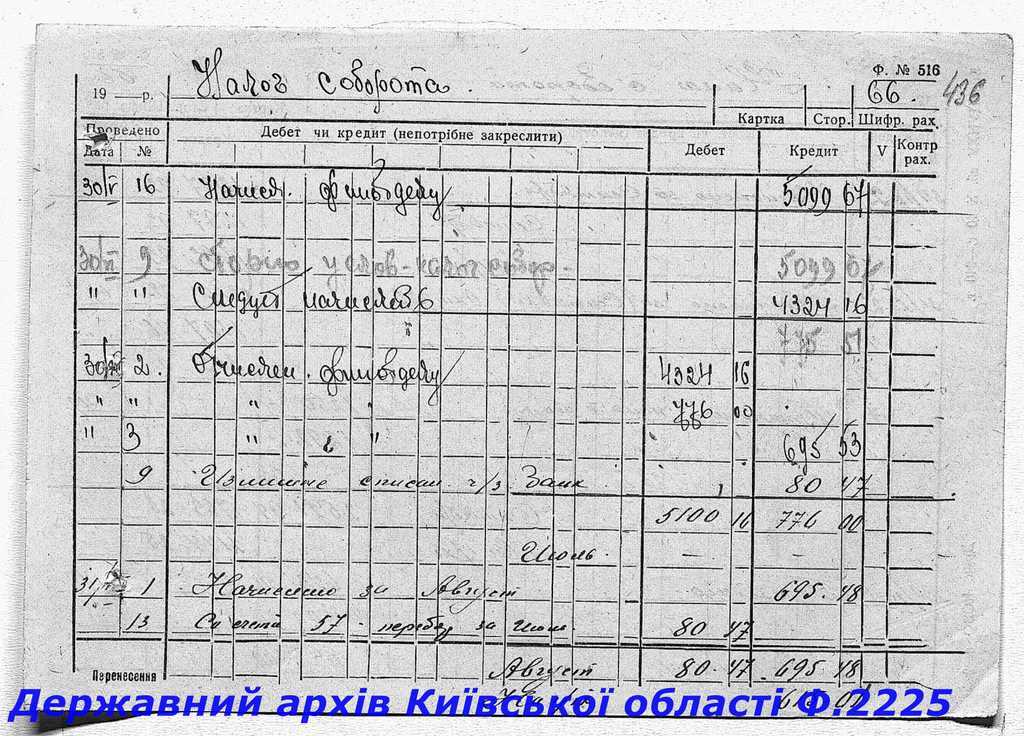 Ф. № 516
Налог соборота.
66. 436
19 — р.
Картка Стор. Шифр. рах.
Проведено Дебет чи кредит (непотрібне закреслити) Дебет Кредит V Контр рах.
Дата №
30/V 16 Начисл. 5099 67
9 5099 67
" " Следует начислять 4324 16
775 51
2. 4324 16
" " " " 776 00
" 3 " " 695 53
9 Излишне списан. ч/з Банк 80 47
5100 16 776 00
Июль. — —
1 Начислено за Август 695.48
13 Со счета 57 за Июль 80 47
Август 80.47 695 48
Перенесення
Державний архів Київської області Ф.2225